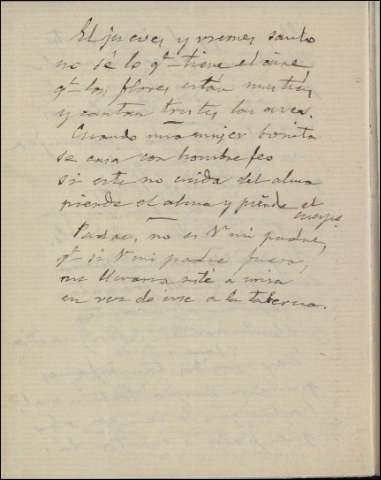 El jueves y viernes santo
no sé lo qe tiene el aire,
qe las flores están mustias
y cantan tristes las aves.
Cuando una mujer bonita
se casa con hombre feo
si este no cuida del alma
pierde el alma y pierde el cuerpo.
Padre, no es Vd mi padre,
qe si Vd mi padre fuera,
me llevaría usté a misa
en vez de irse a la taberna.